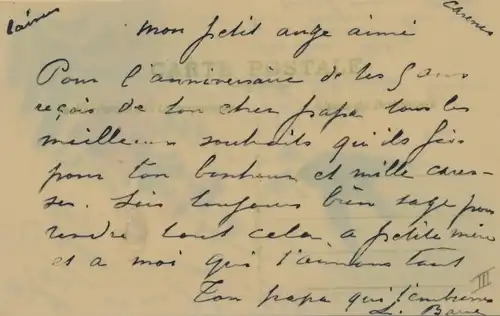 caresses
Mon petit ange aimé
CARTE POSTALE
Pour l'anniversaire de tes 5 ans
reçois de ton cher papa tous les
meilleurs souhaits qu'ils fais
pour ton bonheur et mille cares-
ses. Sois toujours bien sage pour
rendre tout cela a petite mère
et a moi qui t'aimons tant
Ton papa qui t'embrasse
III